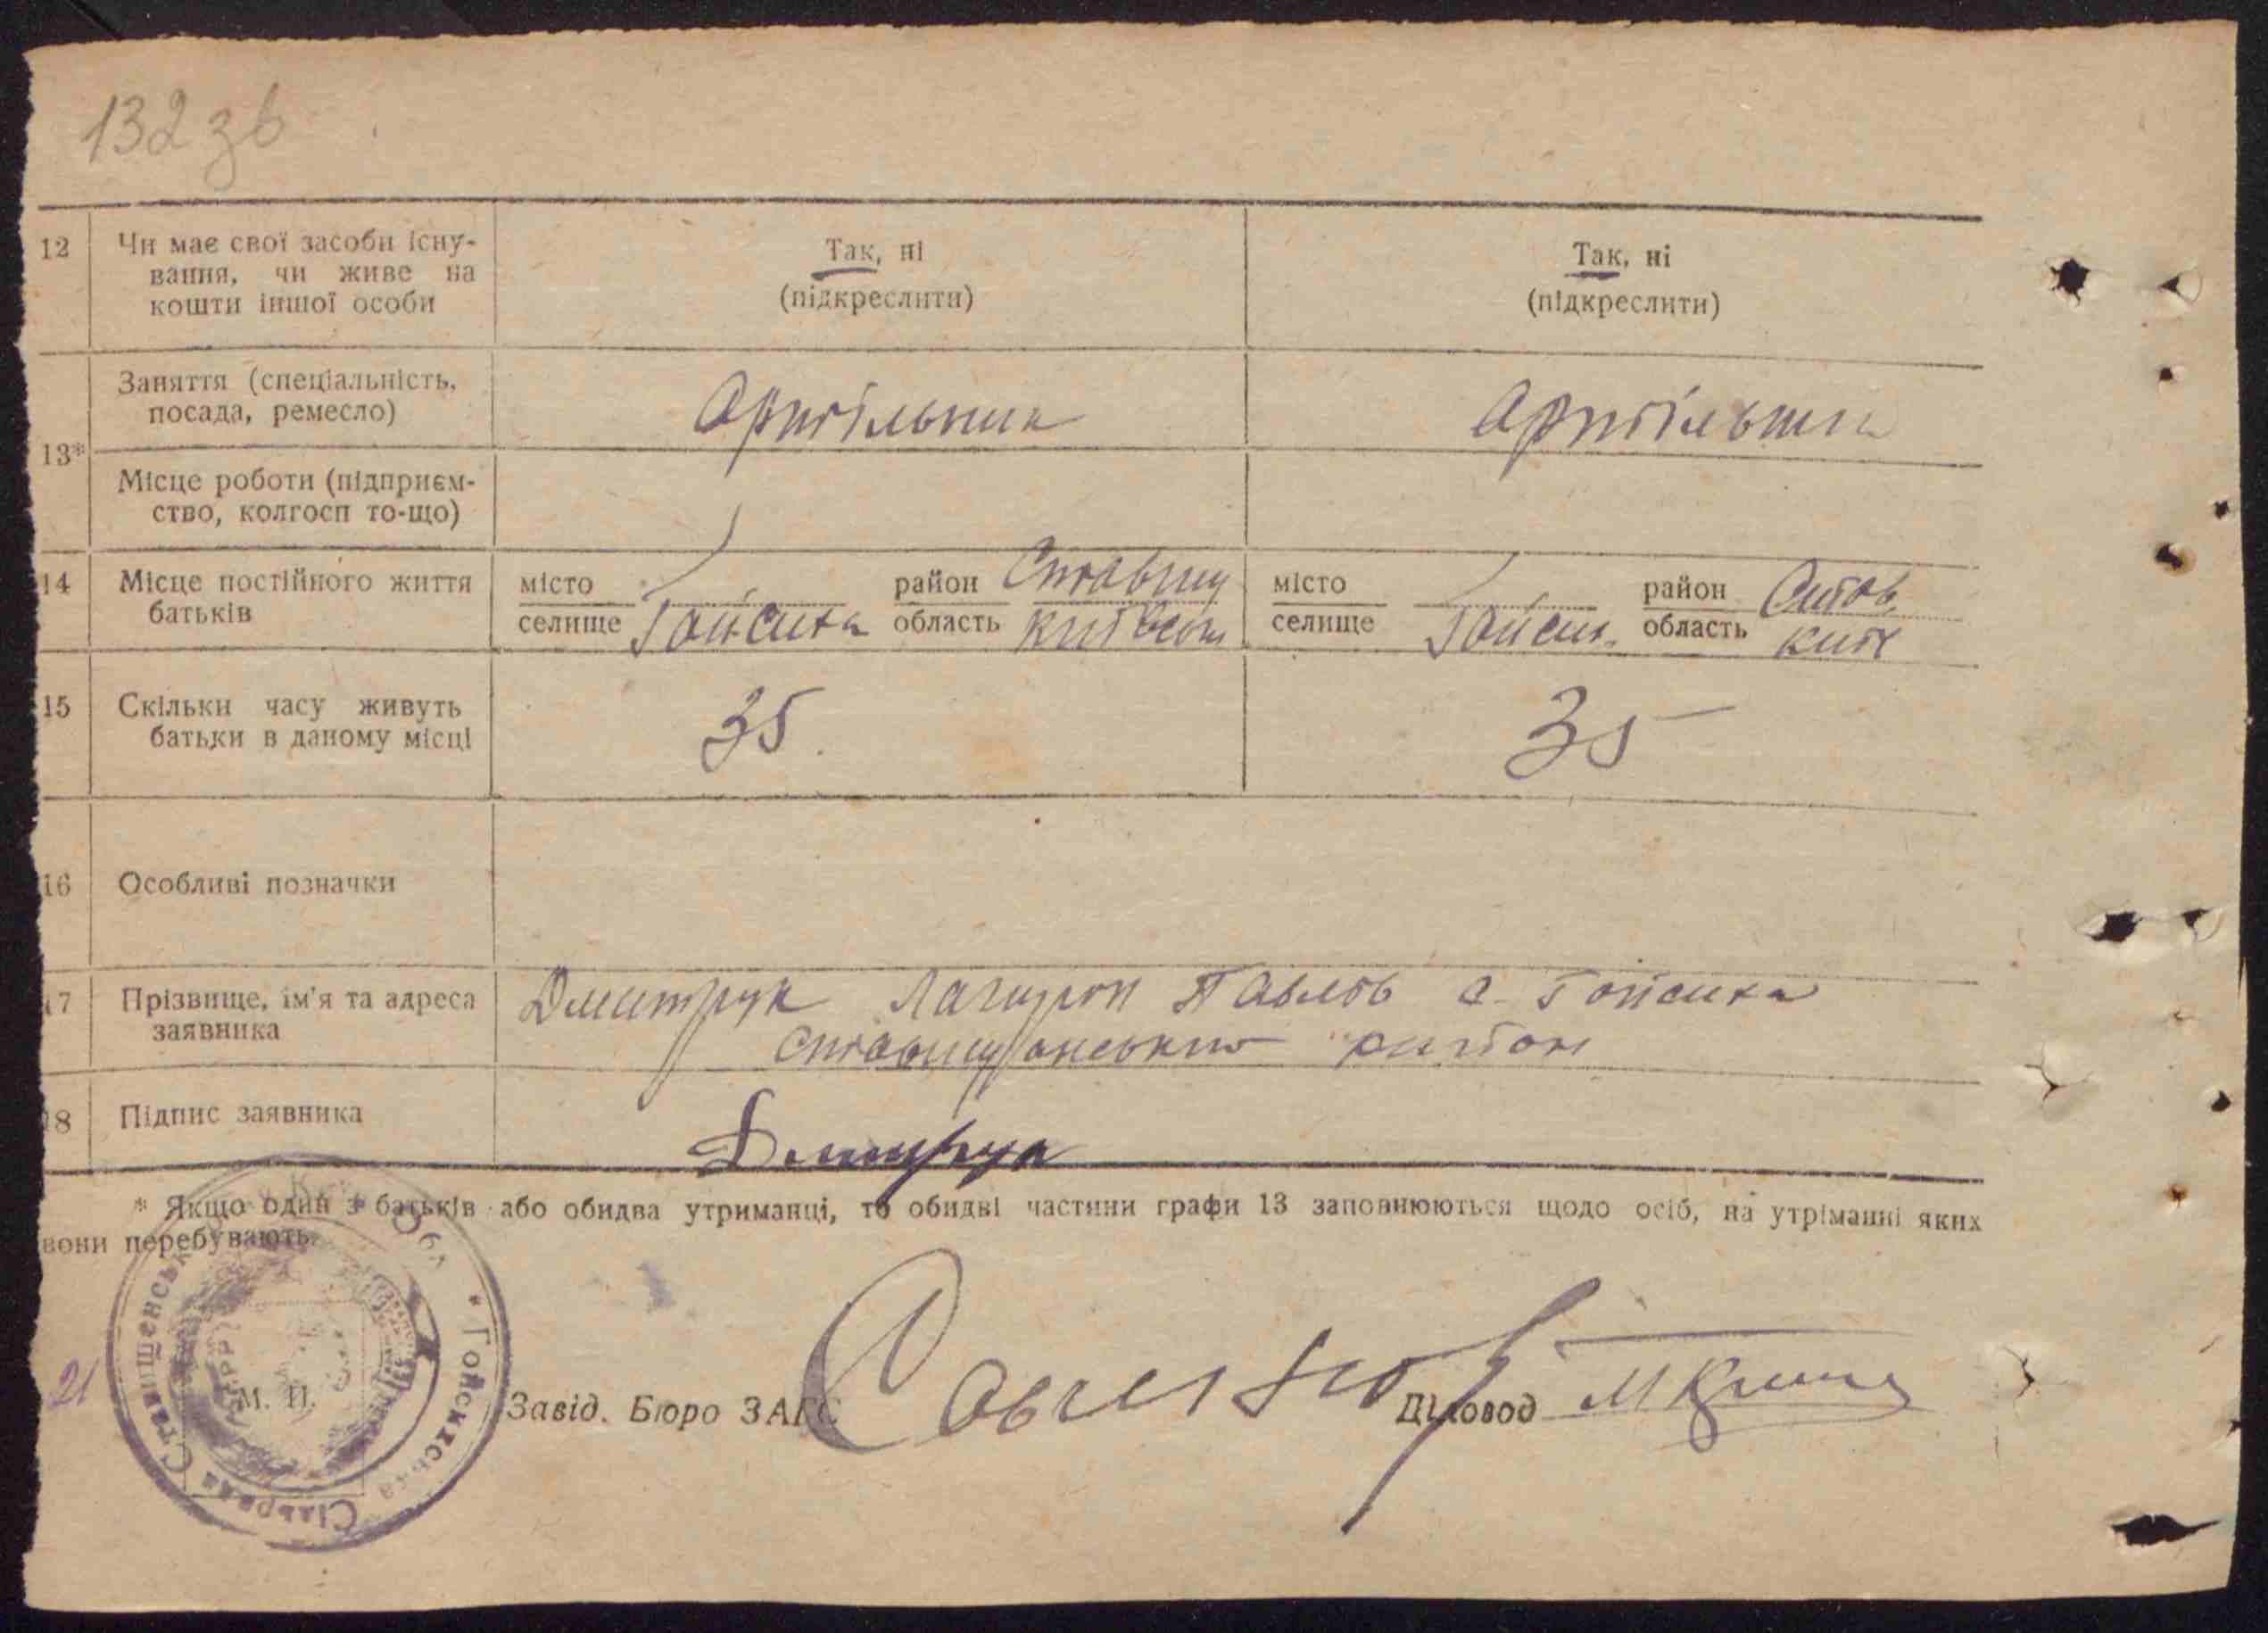 132 зв
12 Чи має свої засоби існу- Так, ні Так, ні
вання, чи живе на (підкреслити) (підкреслити)
кошти іншої особи
13* Заняття (спеціальність, Артільник Артільник
посада, ремесло)
Місце роботи (підприєм-
ство, колгосп то-що)
14 Місце постійного життя місто район Ставищ місто район Став
батьків селище Гойсиха область Київськ селище Гойсих область Київ
15 Скільки часу живуть 35 35
батьки в даному місці
16 Особливі позначки
17 Прізвище, ім'я та адреса Дмитрук Павлов с. Гойсиха
заявника Ставищанський район
18 Підпис заявника Дмитрук
* Якщо один з батьків або обидва утриманці, то обидві частини графи 13 заповнюються щодо осіб, на утріманні яких
вони перебувають.
21 М. П. Завід. Бюро ЗАГС Діловод
Сільрада Ставищенськ